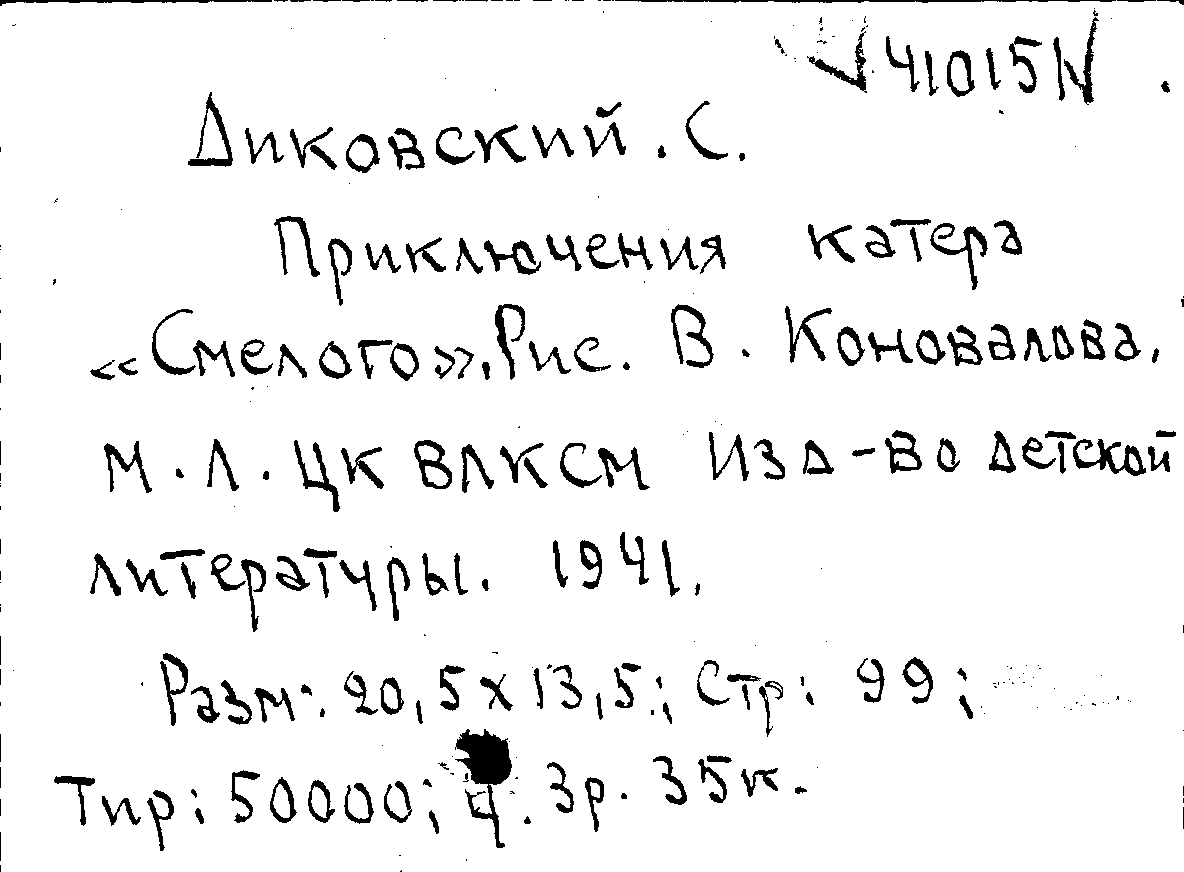 41015N
Диковский. С.
Приключения катера
«Смелого». Рис. В. Коновалова.
М. Л. ЦК ВЛКСМ Изд-во детской
литературы. 1941.
Разм: 20,5 х 13,5; Стр: 99;
Тир: 50000; Ц. 3р. 35к.